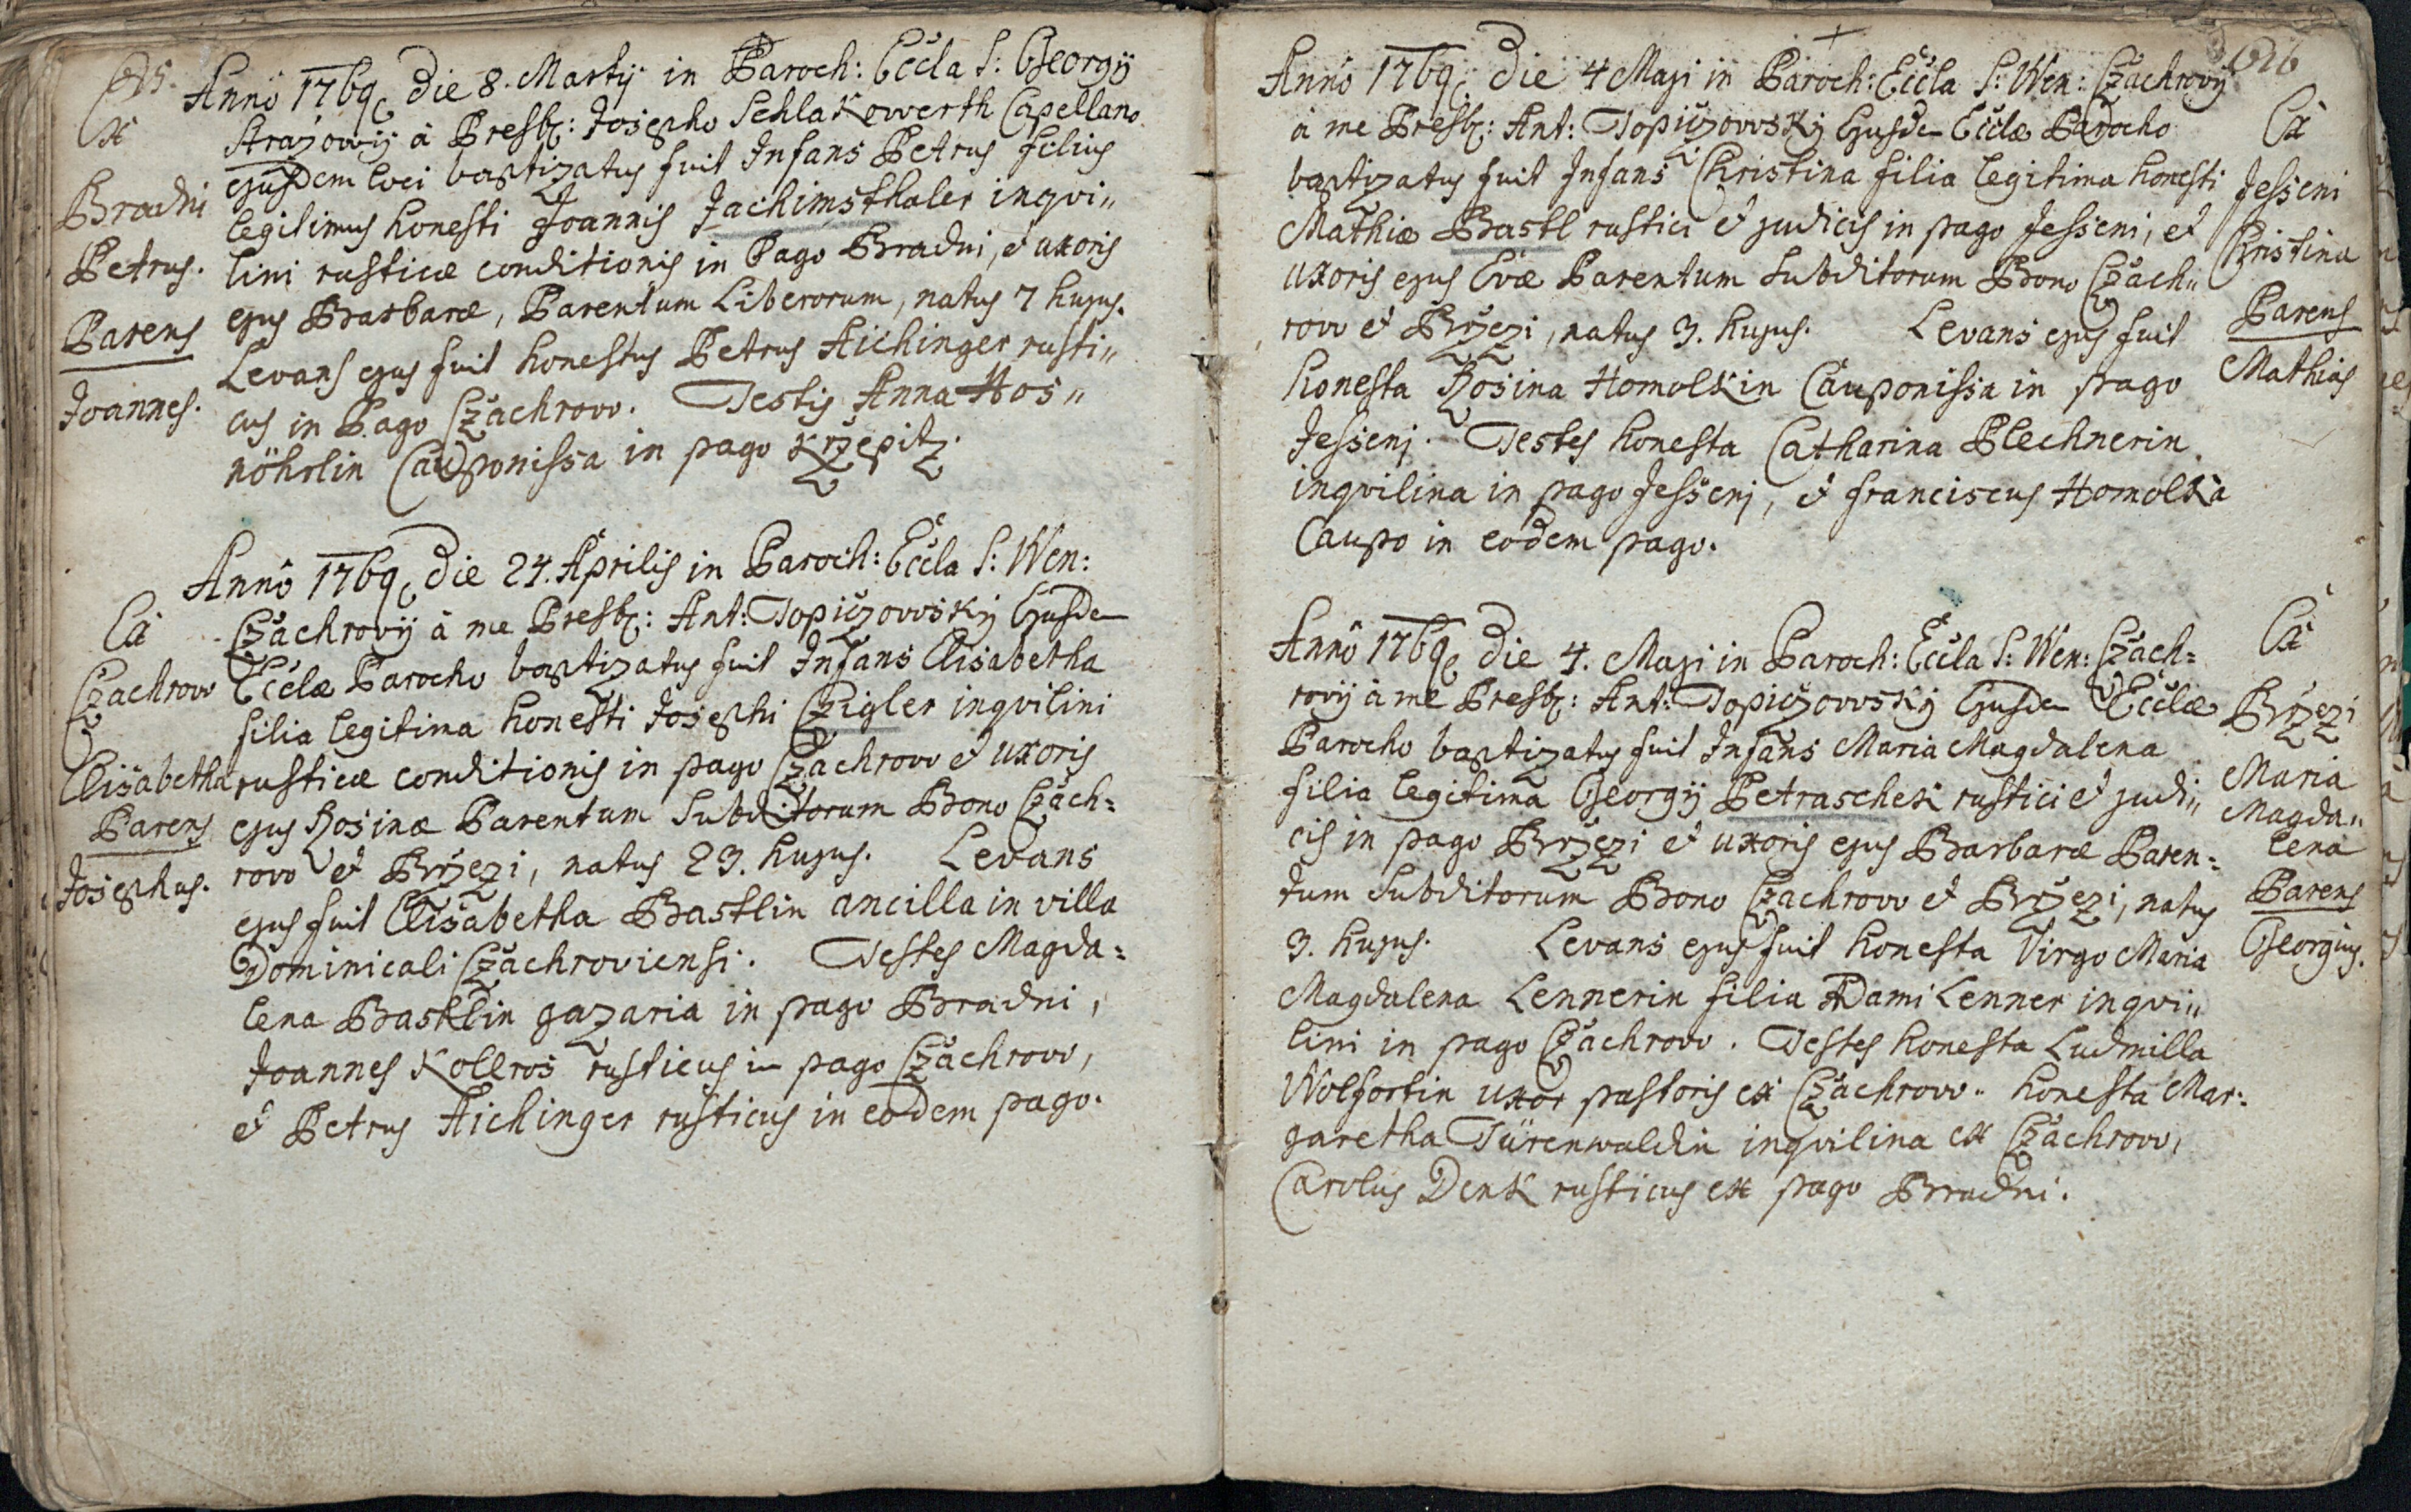 Ex
Bradni
Petrus.
Parens
Joannes.
Anno 1769 die 8. Martij in Paroch: Eccla S: Georgij
Strażowij à Presb: Josepho Schlakowerth Capellano
ejusdem loci baptizatus fuit Infans Petrus filius
legitimus honesti Joannis Jachimsthaler inqvi„
lini rusticæ conditionis in Pago Bradni, et uxoris
ejus Barbaræ, Parentum Liberorum, natus 7 hujus.
Levans ejus fuit honestus Petrus Aichinger rusti„
cus in Pago Czachrow. Testis Anna Hos„
nöhrlin Cauponissa in pago Krżepitz.
Ex
Czachrow
Elisabetha
Parens
Josephus.
Anno 1769 die 24. Aprilis in Paroch: Eccla S: Wen:
Czachrovij à me Presb: Ant: Topiczowskÿ Ejusde
Ecclæ Parocho baptizatus fuit Infans Elisabetha
filia legitima honesti Josephi Czigler inqvilini
rusticæ conditionis in pago Czachrow et uxoris
ejus Rosinæ Parentum Subditorum Bono Czach=
row et Brżezi, natus 23. hujus. Levans
ejus fuit Elisabetha Bastlin ancilla in villa
Dominicali Czachroviensi. Testes Magda=
lena Bastlin gazaria in pago Bradni,
Joannes Kollros rusticus in pago Czachrow,
et Petrus Aichinger rusticus in eodem pago.
626
Anno 1769 die 4 Maji in Paroch: Eccla S: Wen: Czachrovij
à me Presb: Ant: Topiczowskÿ Ejusde Ecclæ Parocho
baptizatus fuit Infans Christina filia legitima honesti
Mathiæ Bastl rustici et judicis in pago Jesseni, et
uxoris ejus Evæ Parentum Subditorum Bono Czach„
row et Brżezi, natus 3. hujus. Levans ejus fuit
honesta Rosina Homolkin Cauponissa in pago
Jessenj. Testes honesta Catharina Plechnerin
inqvilina in pago Jessenj, et Franciscus Homolka
Caupo in eodem pago.
Ex
Jesseni
Christina
Parens
Mathias
Anno 1769 die 4. Maji in Paroch: Eccla S: Wen: Czach=
rovij à me Presb: Ant: Topiczowskÿ Ejusde Ecclæ
Parocho baptizatus fuit Infans Maria Magdalena
filia legitima Georgij Petraschek rustici et judi„
cis in pago Brżezi et uxoris ejus Barbaræ Paren=
tum Subditorum Bono Czachrow et Brżezi, natus
3. hujus. Levans ejus fuit honesta Virgo Maria
Magdalena Lennerin filia Adami Lenner inqvi„
lini in pago Czachrow. Testes honesta Ludmilla
Wolfortin uxor pastoris ex Czachrow. honesta Mar=
garetha Türenwaldin inqvilina ex Czachrow,
Carolus Denk rusticus ex pago Bradni.
Ex
Brżezi
Maria
Magda„
lena
Parens
Georgius.